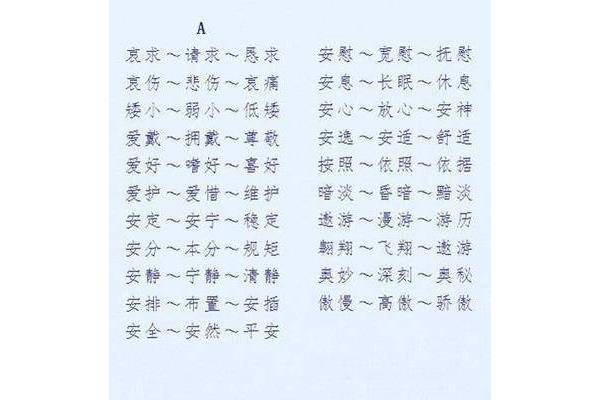 A
哀求～请求～恳求
哀伤～悲伤～哀痛
矮小～弱小～低矮
爱戴～拥戴～尊敬
爱好～嗜好～喜好
爱护～爱惜～维护
安定～安宁～稳定
安分～本分～规矩
安静～宁静～清静
安排～布置～安插
安全～安然～平安
安慰～宽慰～抚慰
安息～长眠～休息
安心～放心～安神
安逸～安适～舒适
按照～依照～依据
暗淡～昏暗～黯淡
遨游～漫游～游历
翱翔～飞翔～遨游
奥妙～深刻～奥秘
傲慢～高傲～骄傲